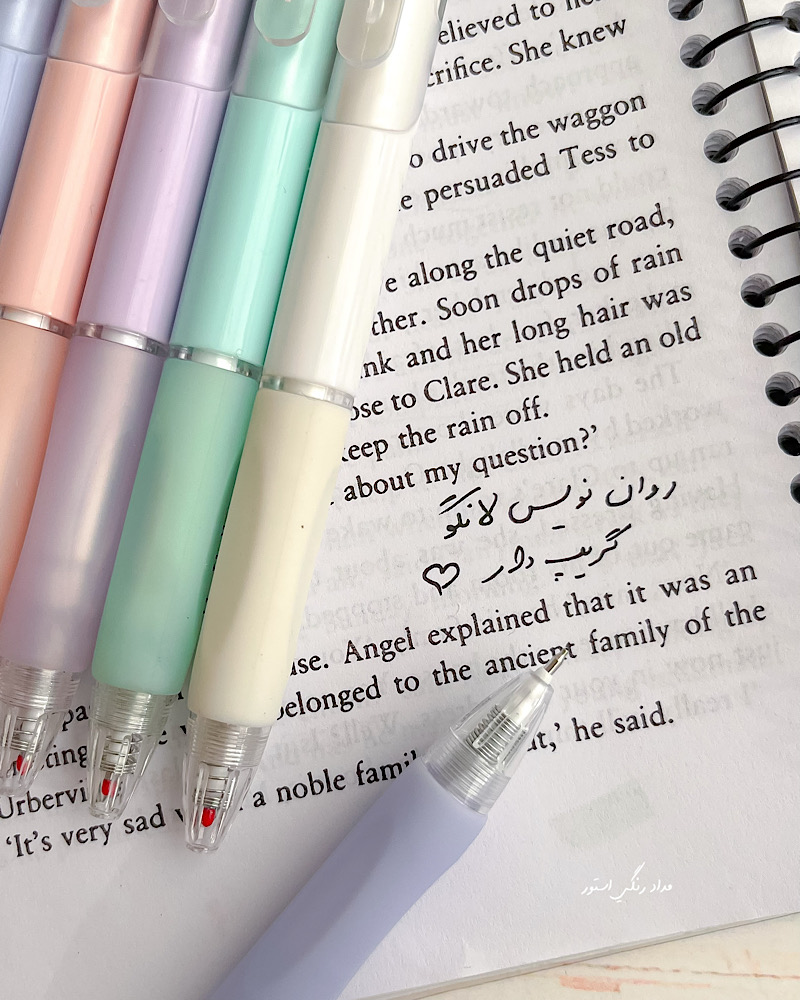 elieved to
crifice. She knew
o drive the waggon
e persuaded Tess to
e along the quiet road,
ther. Soon drops of rain
nk and her long hair was
ose to Clare. She held an old
keep the rain off.
about my question?'
روان نویس لانگو
گریپ دار ♡
use. Angel explained that it was an
belonged to the ancient family of the
ting
Urbervi
at,' he said.
'It's very sad a noble famil
مداد رنگی استور